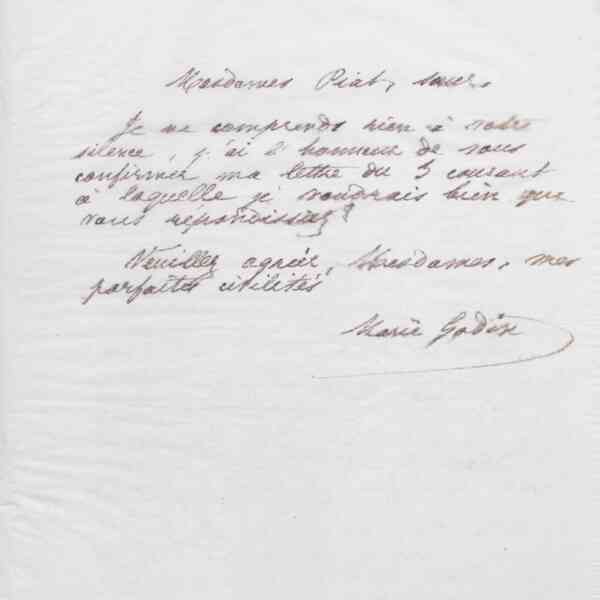 Mesdames Piat, sœurs
Je ne comprends rien à votre
silence, j'ai l'honneur de vous
confirmer ma lettre du 5 courant
à laquelle je voudrais bien que
vous repondissiez
Veuillez agréer, Mesdames, mes
parfaites civilités
Marie Godin